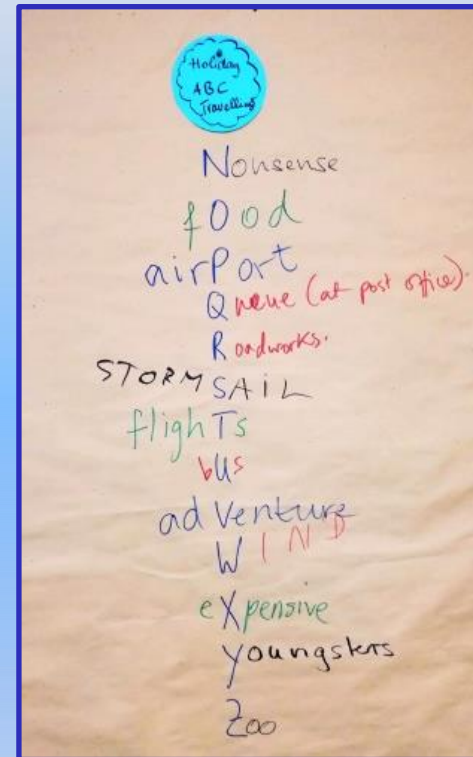 Holiday
ABC
Travelling
Nonsense
fOod
airPort
Queue (at post office).
Roadworks.
STORM SAIL
flighTs
bUs
adVenture
WIND
eXpensive
Youngsters
Zoo